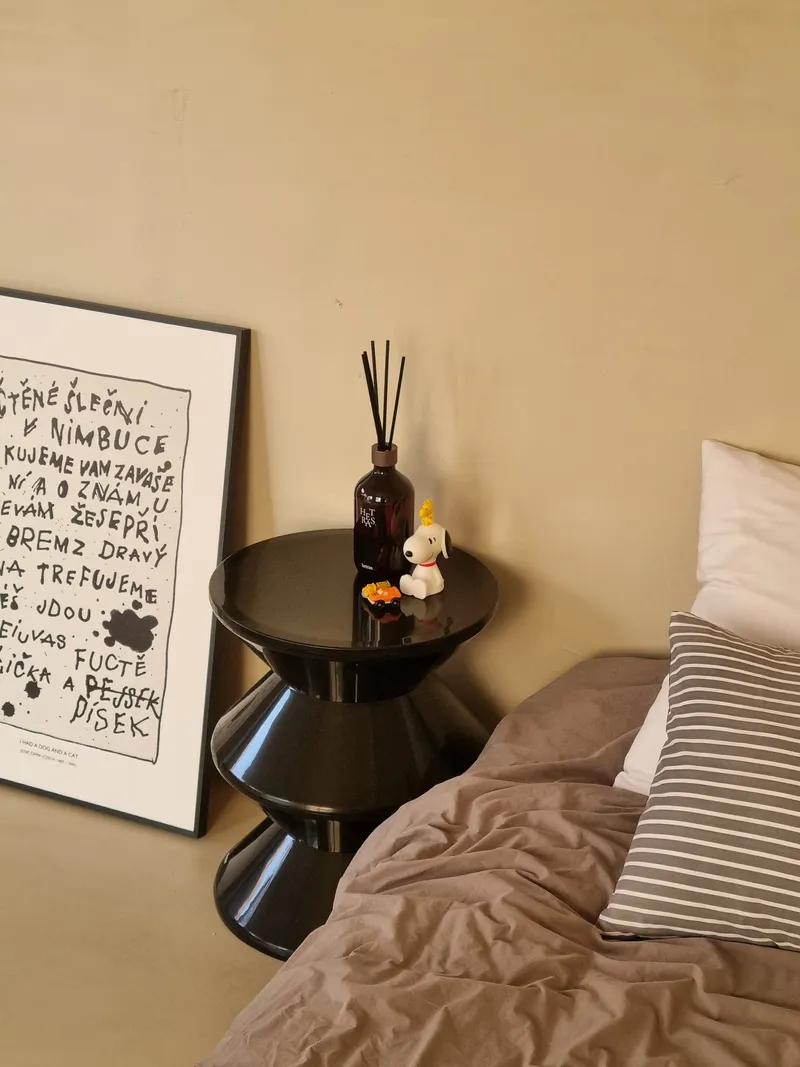 CTĚNÉ ŠLEČNI
V NIMBUCE
KUJEME VAM ZAVAŠE
NÍ A O ZNÁM U
EVÁM ŽESEPŘÍ
BREMZ DRAVÝ
NA TREFUJEME
JDOU
EIUVAS FUCTĚ
IČKA A PEJSEK
PÍSEK
I HAD A DOG AND A CAT
HET
RAS